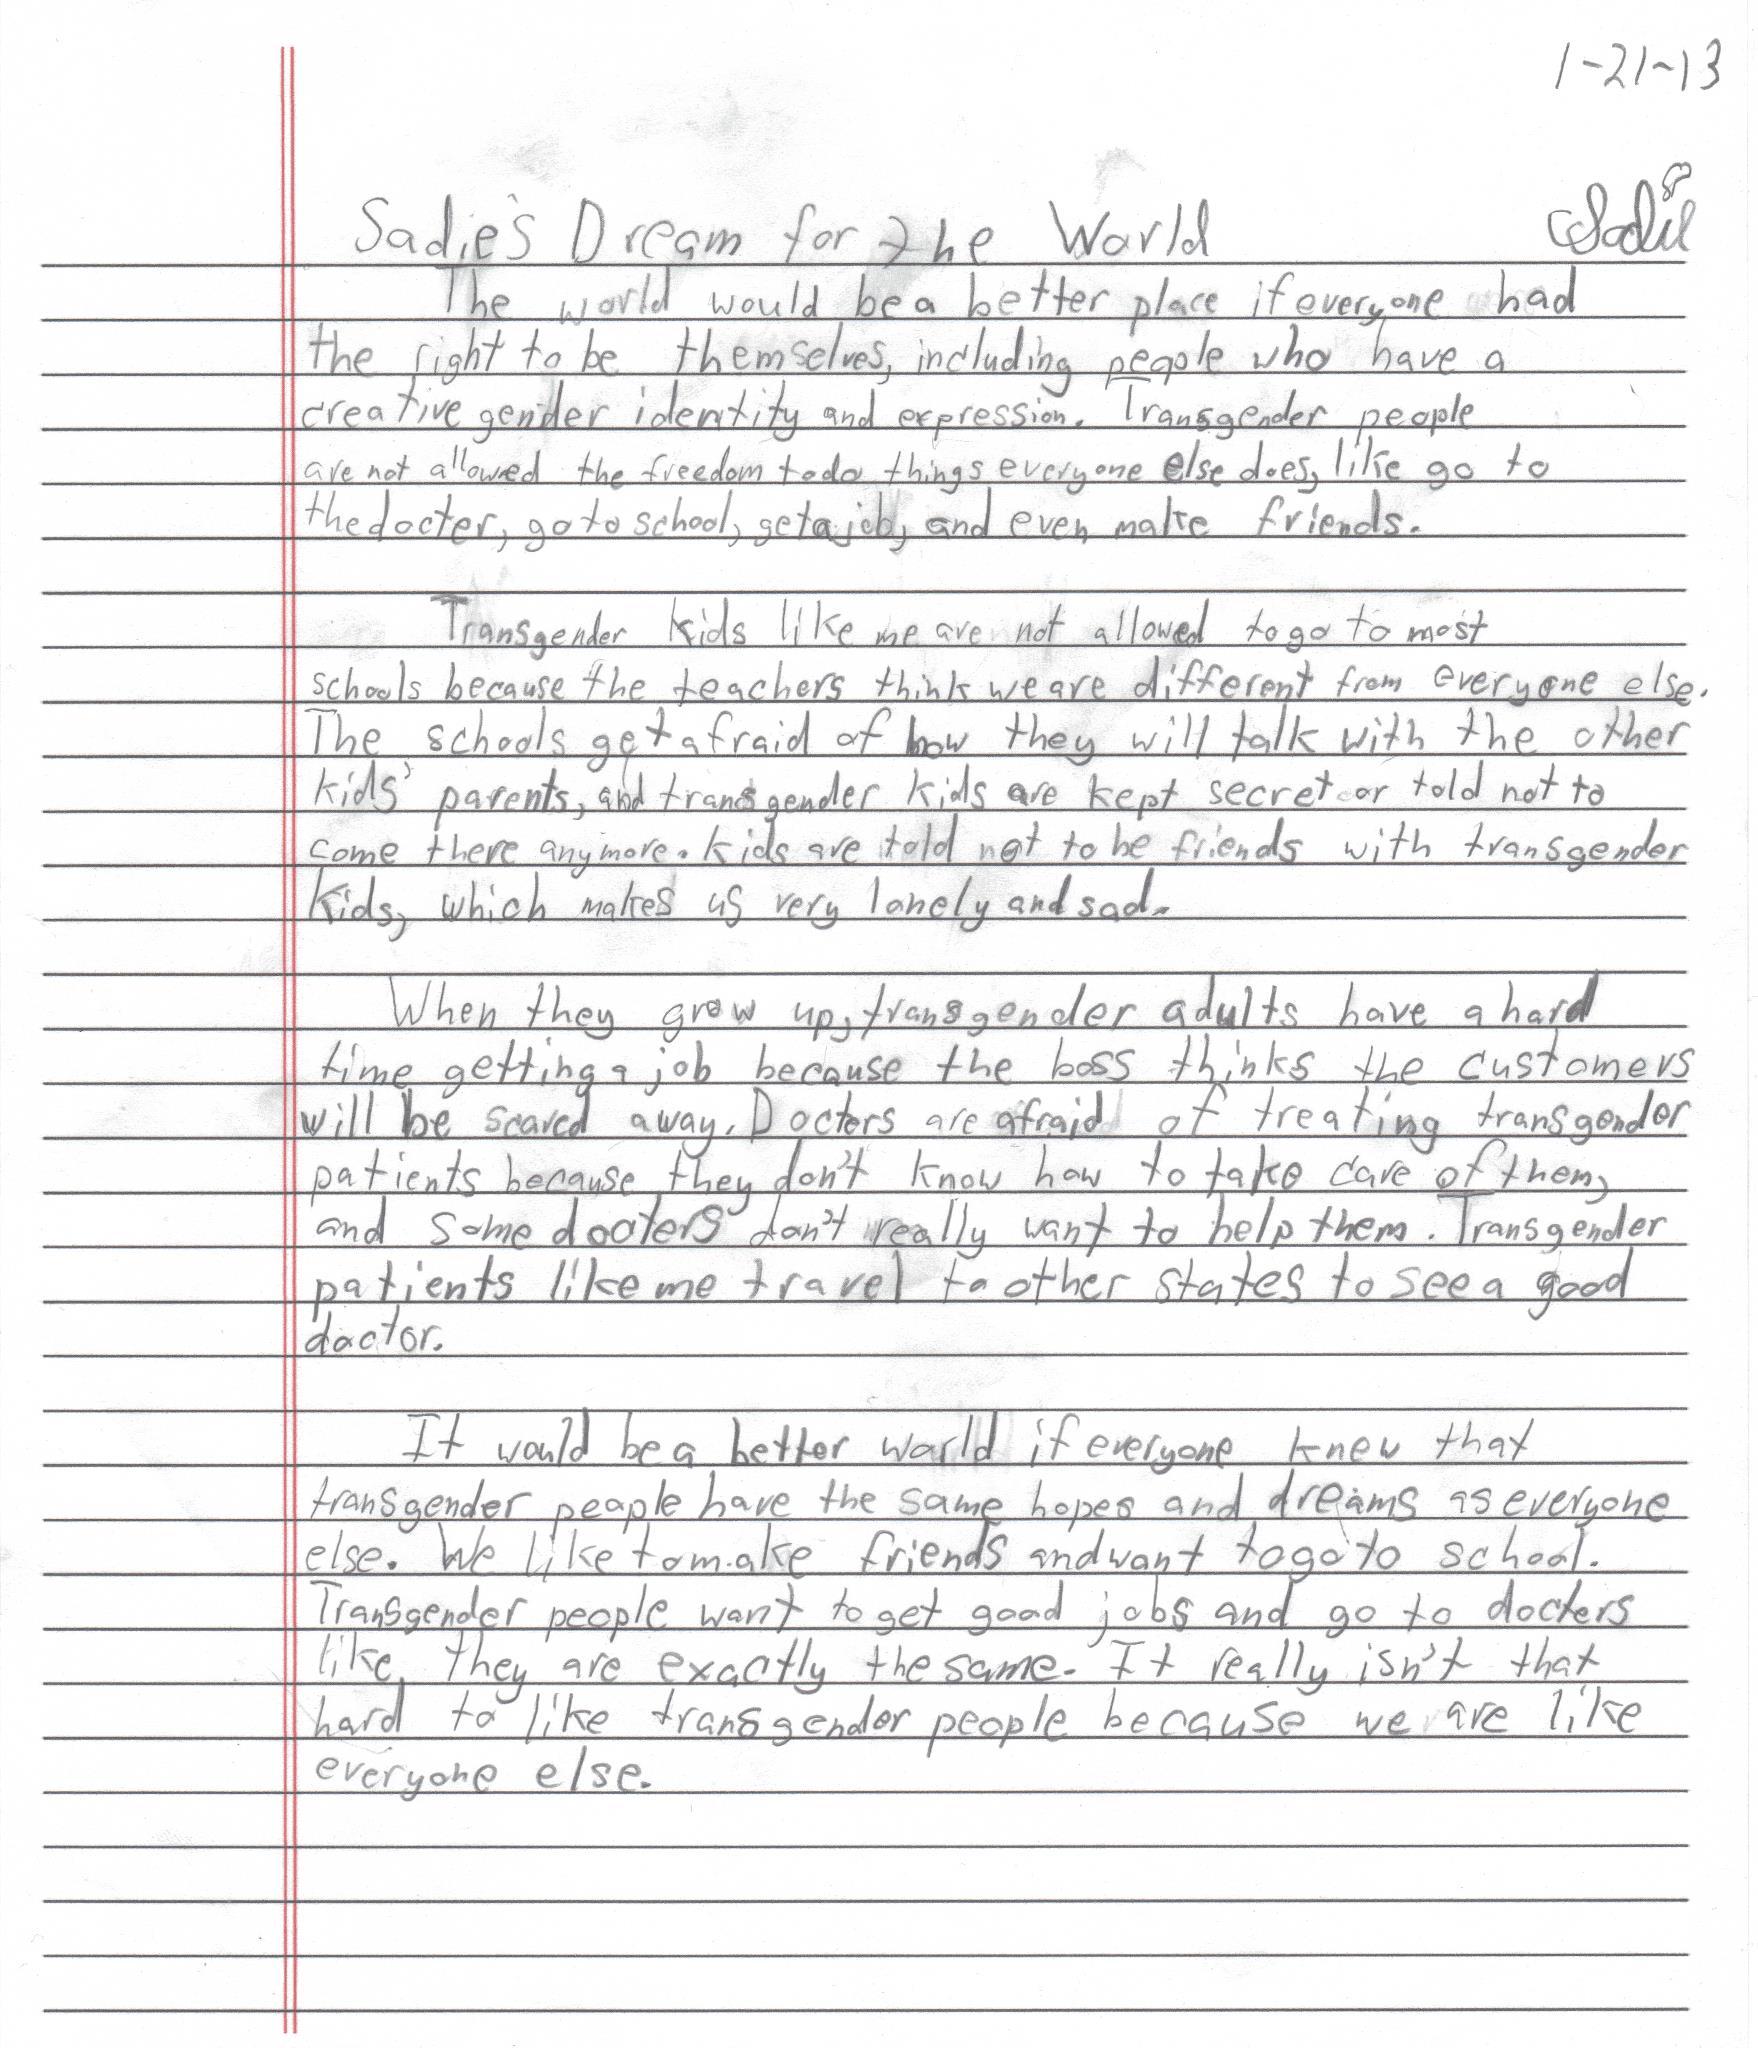 1-21-13
Sadie's Dream for the World
Sadie
The world would be a better place if everyone had
the right to be themselves, including people who have a
creative gender identity and expression. Transgender people
are not allowed the freedom to do things everyone else does, like go to
the docter, go to school, get a job, and even make friends.
Transgender kids like me are not allowed to go to most
schools because the teachers think we are different from everyone else.
The schools get afraid of how they will talk with the other
kids' parents, and transgender kids are kept secret or told not to
come there anymore. Kids are told not to be friends with transgender
kids, which makes us very lonely and sad.
When they grow up, transgender adults have a hard
time getting a job because the boss thinks the customers
will be scared away. Doctors are afraid of treating transgender
patients because they don't know how to take care of them,
and some docters don't really want to help them. Transgender
patients like me travel to other states to see a good
doctor.
It would be a better world if everyone knew that
transgender people have the same hopes and dreams as everyone
else. We like to make friends and want to go to school.
Transgender people want to get good jobs and go to docters
like they are exactly the same. It really isn't that
hard to like transgender people because we are like
everyone else.